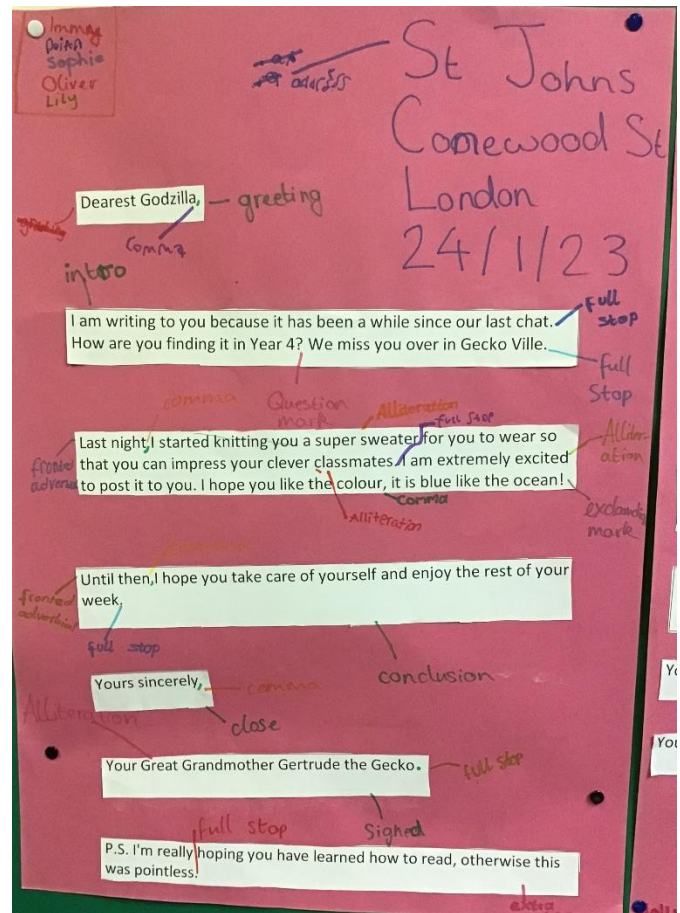 Immy
Sophie
Oliver
Lily
address
St Johns
Comewood St
London
24/1/23
Dearest Godzilla,
greeting
Comma
intro
I am writing to you because it has been a while since our last chat.
How are you finding it in Year 4? We miss you over in Gecko Ville.
full stop
full stop
Question mark
comma
Alliteration
full stop
Last night, I started knitting you a super sweater for you to wear so
that you can impress your clever classmates. I am extremely excited
to post it to you. I hope you like the colour, it is blue like the ocean!
fronted
Alliteration
Comma
Alliteration
mark
Until then, I hope you take care of yourself and enjoy the rest of your
week.
fronted adverbial
full stop
conclusion
Yours sincerely,
comma
close
Alliteration
Your Great Grandmother Gertrude the Gecko.
full stop
Signed
full stop
P.S. I'm really hoping you have learned how to read, otherwise this
was pointless!
extra
You